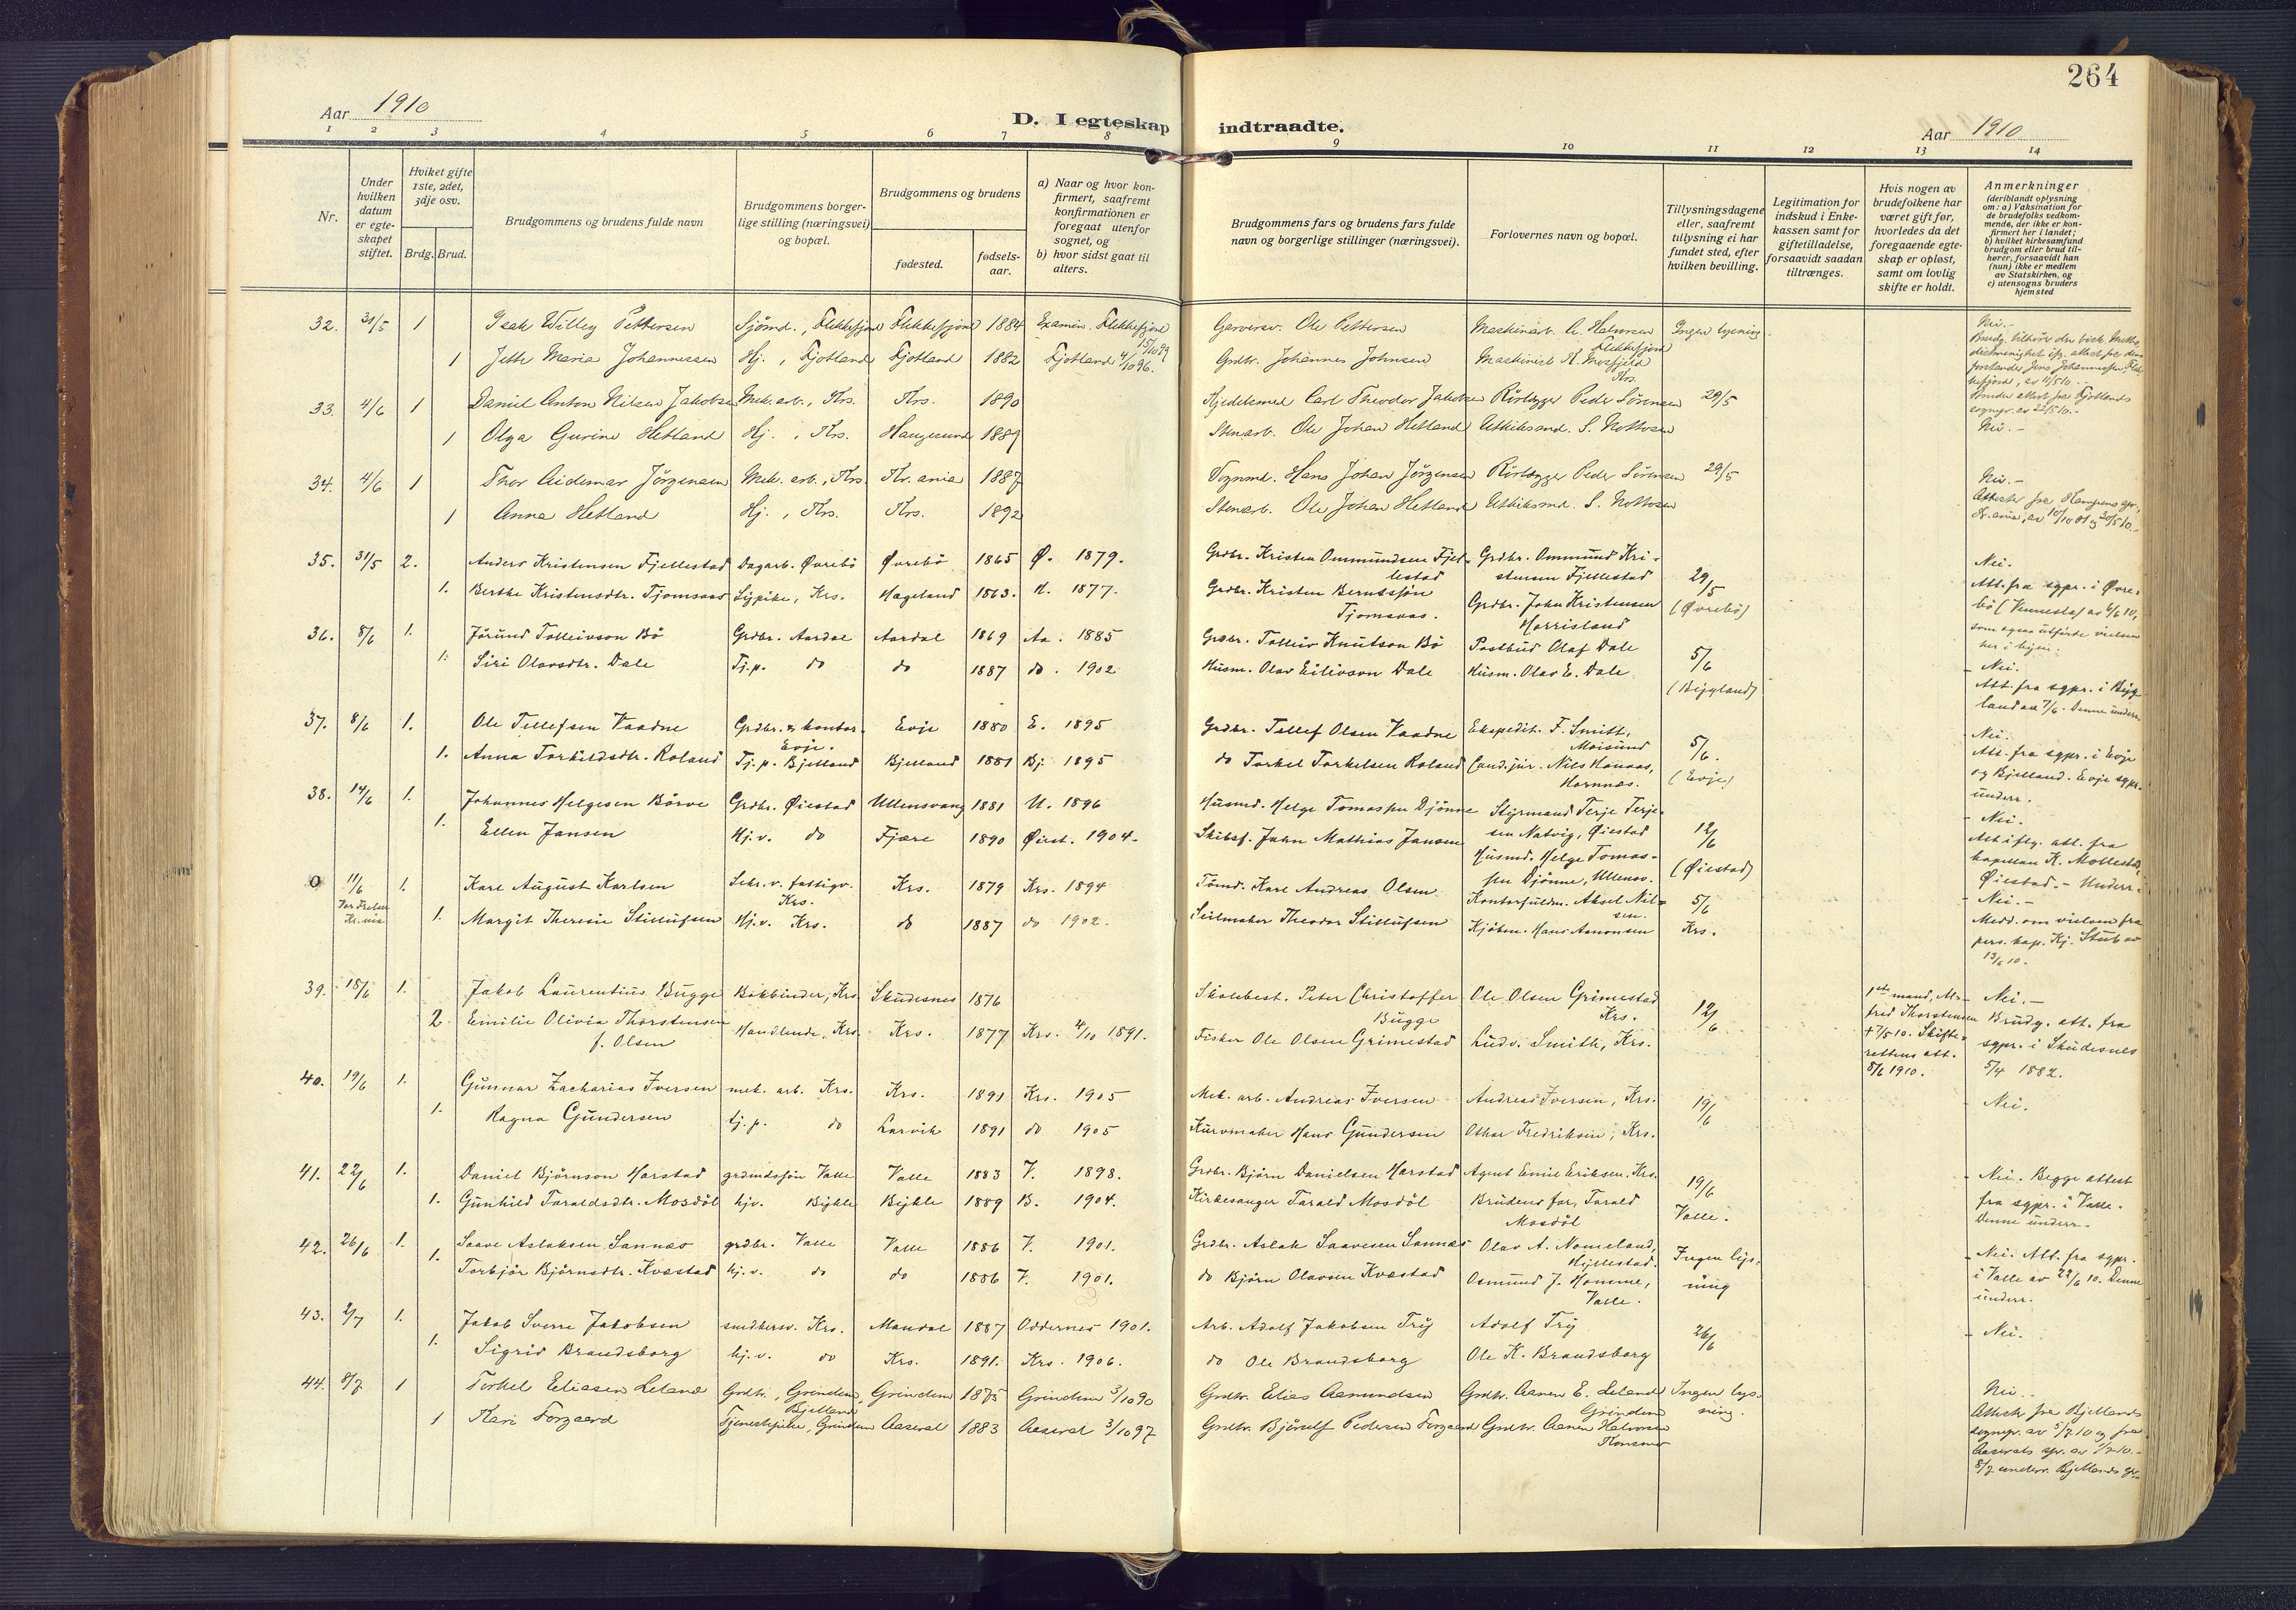 264
Aar 1910
D. I egteskap indtraadte.
Aar 1910
1 2 3 4 5 6 7 8 9 10 11 12 13 14
Nr.
Under hvilken datum er egteskapet stiftet.
Hviket gifte 1ste, 2det, 3dje osv.
Brdg. Brud.
Brudgommens og brudens fulde navn
Brudgommens borgerlige stilling (næringsvei) og bopæl.
Brudgommens og brudens
fødested.
fødselsaar.
a) Naar og hvor konfirmert, saafremt konfirmationen er foregaat utenfor sognet, og
b) hvor sidst gaat til alters.
Brudgommens fars og brudens fars fulde navn og borgerlige stillinger (næringsvei).
Forlovernes navn og bopæl.
Tillysningsdagene eller, saafremt tillysning ei har fundet sted, efter hvilken bevilling.
Legitimation for indskud i Enkekassen samt for giftetilladelse, forsaavidt saadan tiltrænges.
Hvis nogen av brudefolkene har været gift før, hvorledes da det foregaaende egteskap er opløst, samt om lovlig skifte er holdt.
Anmerkninger (deriblandt oplysning om: a) Vaksination for de brudefolks vedkommende, der ikke er konfirmert her i landet; b) hvilket kirkesamfund brudgom eller brud tilhører, forsaavidt han (hun) ikke er medlem av Statskirken, og c) utensogns bruders hjemsted
32. 31/5 1 Isak Willy Pettersen Sjömd., Flekkefjord Flekkefjord 1884 Examin. Flekkefjord 15/10 99 Garversv. Ole Pettersen Maskinarb. A. Halvorsen Flekkefjord Ingen lysning. Nei.-
1 Jette Maria Johannessen Hj., Fjotland Fjotland 1882 Fjotland 4/10 96. Grdbr. Johannes Johnsen Maskinist K. Mosfjeld Krs.
33. 4/6 1 Daniel Anton Nilsen Jakobsen Mek. arb., Krs. Krs. 1890 Kjedelsmed Carl Theodor Jakobsen Rörlægger Peder Sörensen 29/5 Nei.-
1 Olga Gurine Hetland Hj., Krs. Haugesund 1889 Stenarb. Ole Johan Hetland Utkiksmd. S. Nottosen
34. 4/6 1 Thor Aidemar Jörgensen Mek. arb., Krs. Kr.ania 1887 Vognmd. Hans Johan Jörgensen Rörlægger Peder Sörensen 29/5 Nei.-
1 Anna Hetland Hj., Krs. Krs. 1892 Stenarb. Ole Johan Hetland Utkiksmd. S. Nottosen
35. 31/5 2. Anders Kristensen Fjellestad Dagarb. Øvrebö Øvrebö 1865 Ø. 1879. Grdbr. Kristen Ommundsen Fjellestad Grdbr. Ommund Kristensen Fjellestad 29/5 (Øvrebö) Nei.
1. Berthe Kristensdtr. Tjomsaas Sypike, Krs. Hægeland 1863. H. 1877. Grdbr. Kristen Berntssön Tjomsaas. Grdbr. John Kristensen Horrisland Att. fra sgpr. i Øvrebö (Vennesla) av 6/6 10, som ogsaa utförte vielsen her i byen.
36. 8/6 1. Jörund Tolleivson Bö Grdbr. Aardal Aardal 1869 Aa. 1885 Grdbr. Tolleiv Knutson Bö Postbud Olaf Dale 5/6 (Bygland) Nei.
1. Siri Olavsdtr. Dale Tj.p. do do 1887 do. 1902 Husm. Olav Eilivson Dale Husm. Olav E. Dale Att. fra sgpr. i Bygland av 7/6. Denne underr.
37. 8/6 1. Ole Tellefsen Vaadne Grdbr. & kontor. Evje. Evje 1880 E. 1895 Grdbr. Tellef Olsen Vaadne Ekspedit. F. Smitt, Moisund 5/6. (Evje) Nei.
1. Anna Torkildsdtr. Roland Tj.p. Bjelland Bjelland 1881 Bj. 1895 do Torkel Torkelsen Roland Cand.jur. Nils Hanaas, Hornnæs. Att. fra sgpr. i Evje og Bjelland. Evje sgpr. underr.
38. 14/6 1. Johannes Helgesen Börve Grdbr. Øiestad Ullensvang 1881 U. 1896 Husmd. Helge Tomassen Djönne Styrmand Terje Terjesen Natvig, Øiestad 12/6 (Øiestad) Nei.
1. Ellen Jansen Hj.v. do Fjære 1890 Øiest. 1904. Skibsf. John Mathias Jansen Husmd. Helge Tomassen Djönne, Ullensv. Att iflg. att. fra kapellan K. Mollestad, Øiestad. - Underr.
0 11/6 Vor Frelser Kr.nia 1. Karl August Karlsen Sekr. v. fattigv. Krs. Krs. 1879 Krs. 1894 Tömd. Karl Andreas Olsen Kontorfuldm. Aksel Nilsen. 5/6 Krs. Nei.-
1. Margit Theresie Stillufsen Hj.v. Krs. do 1887 do 1902. Seilmaker Theodor Stillufsen Kjöbm. Hans Aanonsen Medd. om vielsen fra pers. kap. Kj. Stub av 13/6 10.
39. 18/6 1. Jakob Laurentius Bugge Bokbinder, Krs Skudesnes 1876 Skolebest. Peter Christoffer Bugge Ole Olsen Grimestad Krs. 12/6 1ste mand, Alfred Thorstensen † 7/5 10. Skifterettens att. 8/6 1910. Nei.-
2. Emilie Olivia Thorstensen f. Olsen Handlende, Krs. Krs. 1877 Krs. 4/10 1891. Fisker Ole Olsen Grimestad Ludv. Smith, Krs. Brudg. att. fra sgpr. i Skudesnes 5/4 1882.
40. 19/6 1. Gunnar Zacharias Iversen mek. arb. Krs. Krs. 1891 Krs. 1905 Mek. arb. Andreas Iversen Andreas Iversen, Krs. 19/6 Nei.
1. Ragna Gundersen tj.p. do Larvik 1891 do 1905 Kurvmaker Hans Gundersen Othar Fredriksen, Krs.
41. 22/6 1. Daniel Björnson Harstad grdmdssön Valle Valle 1883 V. 1898. Grdbr. Björn Danielsen Harstad Agent Emil Eriksen, Krs. 19/6 Valle. Nei. Begge attest
1. Gunhild Taraldsdtr. Mosdöl hjv. Bykle Bykle 1889 B. 1904. Kirkesanger Tarald Mosdöl Brudens far, Tarald Mosdöl fra sgpr. i Valle. Denne underr.
42. 26/6 1. Saave Aslaksen Sannæs grdbr. Valle Valle 1886 V. 1901. Grdbr. Aslak Saavesen Sannæs Olav A. Nomeland, Hyllestad. Ingen lysning Nei. Att. fra sgpr.
1. Torbjör Björnsdtr. Kvæstad hj.v. do do 1886 V. 1901. do Björn Olavsen Kvæstad Osmund J. Homme, Valle. i Valle av 22/6 10. Denne underr.
43. 2/7 1. Jakob Sverre Jakobsen smedkersv. Krs. Mandal 1887 Oddernes 1901. Arb. Adolf Jakobsen Try Adolf Try 26/6 Nei.
1. Sigrid Brandsborg hj.v. do Krs. 1891. Krs. 1906. do Ole Brandsborg Ole K. Brandsborg
44. 8/7 1 Torkel Eliasen Leland Grdbr., Grindem, Bjelland Grindem 1875 Grindem 3/10 90 Grdbr. Elias Aamundsen Grdbr. Aanen E. Leland Grindem Ingen lysning. Nei.
1 Kari Forgaard Tjenestepike, Grindem Aaseral 1883 Aaseral 3/10 97 Grdbr. Björulf Pedersen Forgaard Grdbr. Aanen Halvorsen Konsmo Attester fra Bjellands sognepr. av 5/7 10 og fra Aaserals spr. av 1/7 10.- 8/7 underr. Bjellands spr.